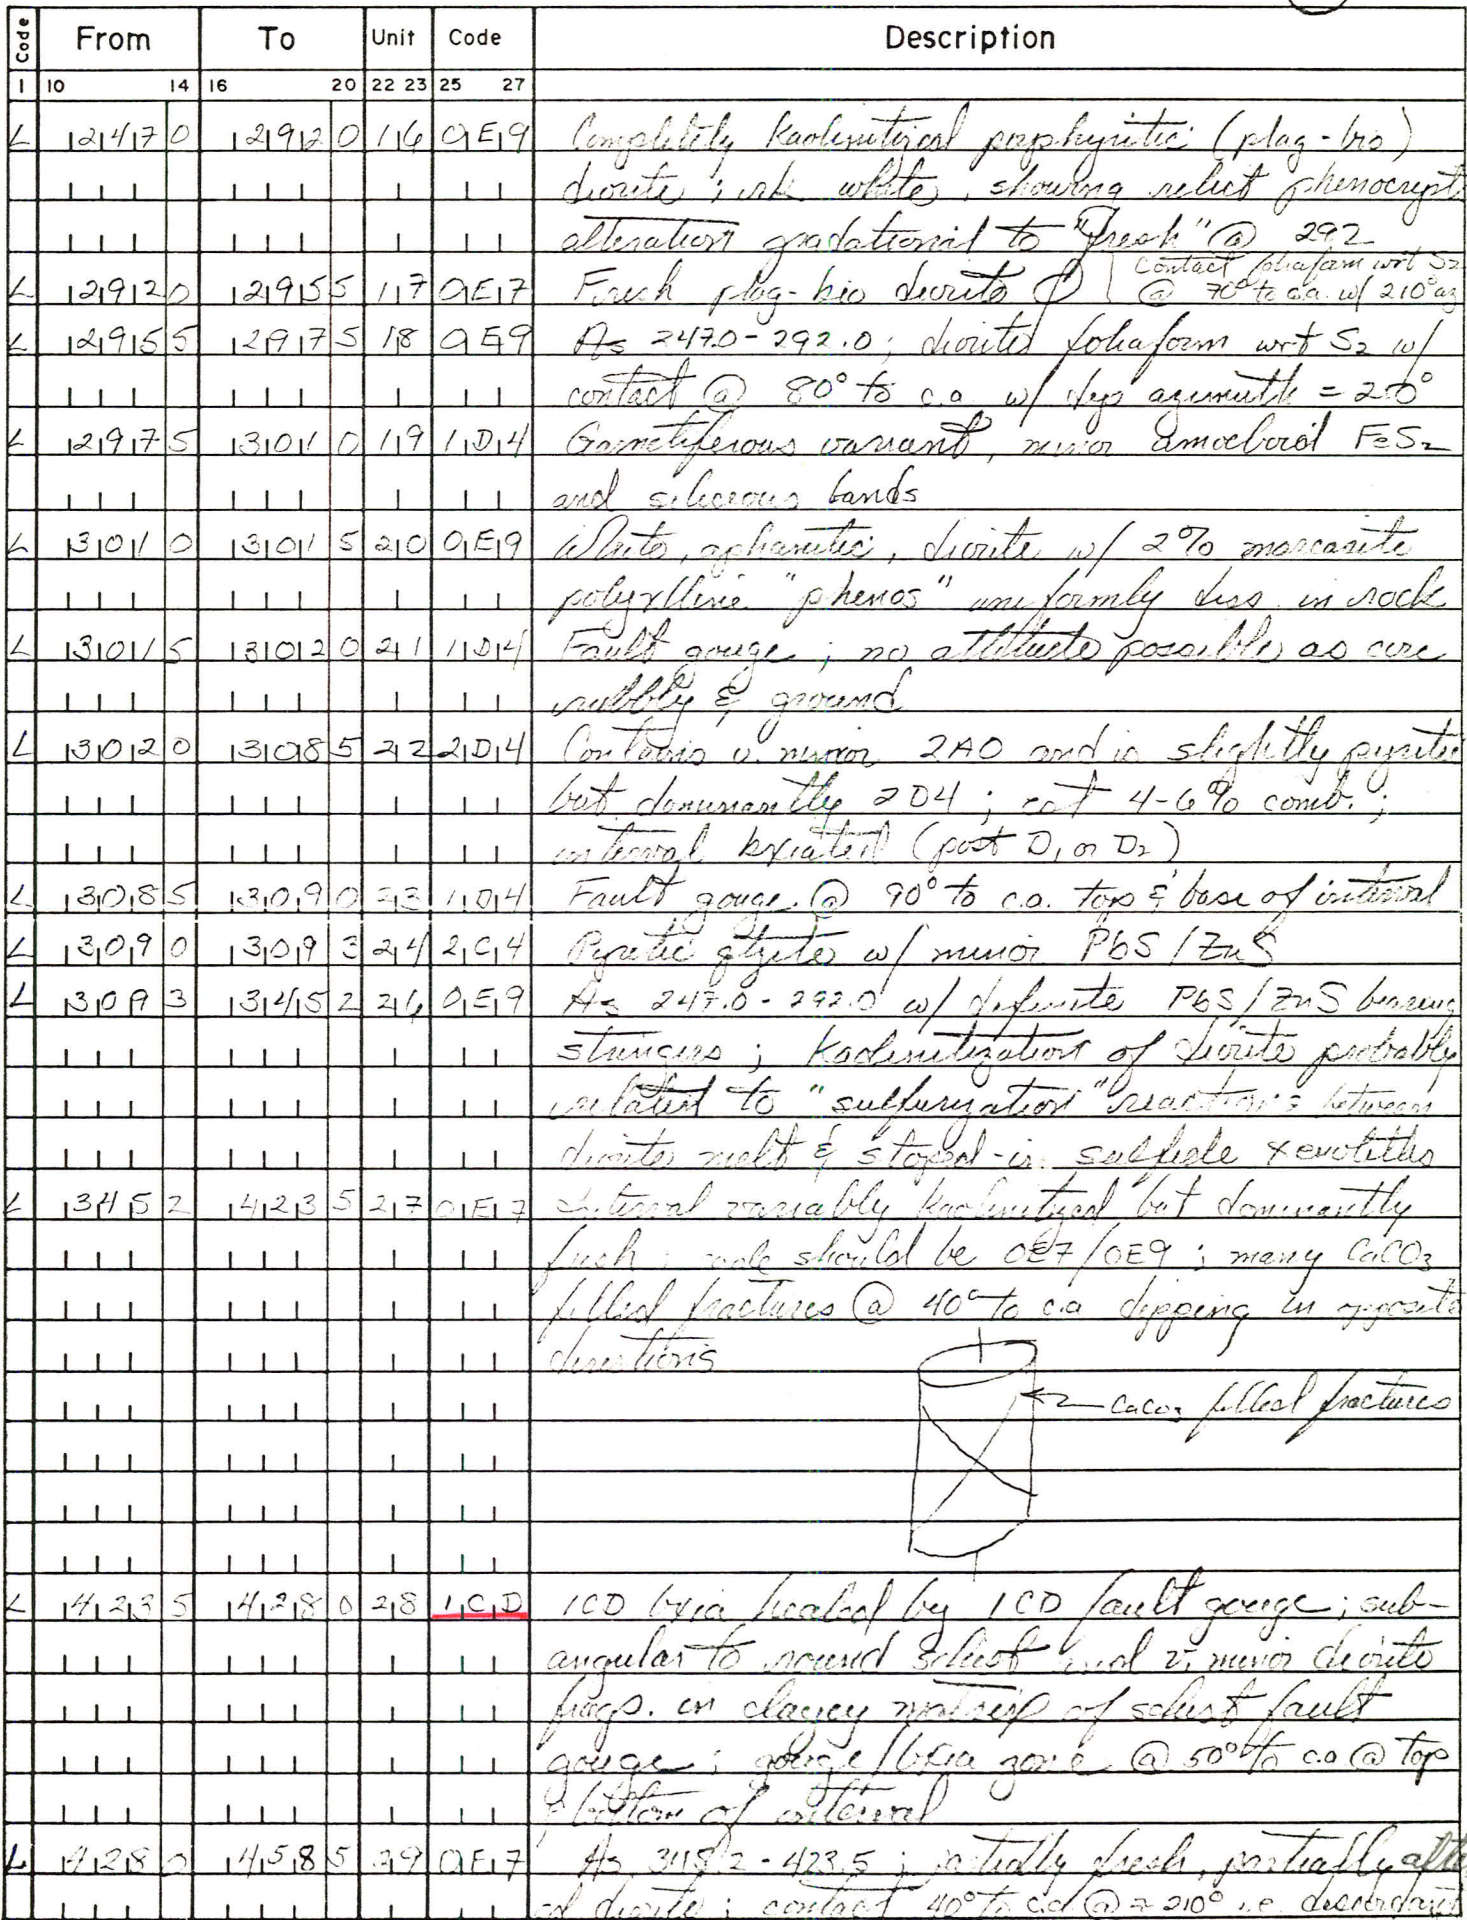 Code From To Unit Code Description
1 10 14 16 20 22 23 25 27
L 247 0 292 0 16 0E9 Completely Kaolinitized porphyritic (plag-bio)
diorite; white, showing relict phenocryst
alteration gradational to "fresh" @ 292
L 292 0 295 5 17 0E7 Fresh plag-bio diorite Contact foliaform wrt S2
@ 70° to c.a. w/ 210° az
L 295 5 297 5 18 0E9 As 247.0-292.0; diorite foliaform wrt S2 w/
contact @ 80° to c.a w/ dip azimuth = 210°
L 297 5 301 0 19 1D4 Garnetiferous variant, minor amoeboid FeS2
and siliceous bands
L 301 0 301 5 20 0E9 White, aphanitic, diorite w/ 2% marcasite
polyxlline "phenos" uniformly diss. in rock
L 301 5 302 0 21 1D4 Fault gouge; no attitude possible as core
rubbly & ground
L 302 0 308 5 22 2D4 Contains v. minor 2A0 and is slightly pyritic
but dominantly 2D4; est 4-6% comb.;
interval bxiated (post D1 or D2)
L 308 5 309 0 23 1D4 Fault gouge @ 90° to c.a. top & base of interval
L 309 0 309 3 24 2C4 Pyritic qtzite w/ minor PbS/ZnS
L 309 3 345 2 26 0E9 As 247.0-292.0 w/ definite PbS/ZnS bearing
stringers; Kaolinitization of diorite probably
related to "sulfurization" reactions between
diorite melt & stoped-in sulfide xenoliths
L 345 2 423 5 27 0E7 Interval variably kaolinitized but dominantly
fresh; code should be 0E7/0E9; many CaCO3
filled fractures @ 40° to c.a dipping in opposite
directions
CaCO3 filled fractures
L 423 5 428 0 28 1CD 1CD bxia healed by 1CD fault gouge; sub-
angular to round schist and v. minor diorite
frags. in clayey matrix of schist fault
gouge; gouge/bxia zone @ 50° to c.a @ top
& bottom of interval
L 428 0 458 5 29 0E7 As 345.2-423.5; partially fresh, partially alter
ed diorite; contact 40° to c.a @ ≈ 210° i.e. discordant